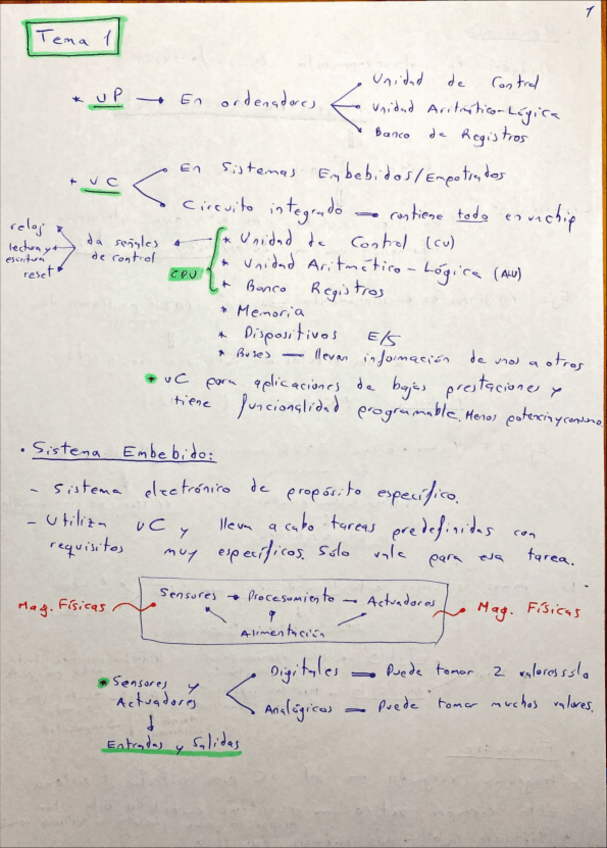 1
Tema 1
* uP → En ordenadores
Unidad de Control
Unidad Aritmático-Lógica
Banco de Registros
* uC
En Sistemas Embebidos/Empotrados
Circuito integrado — contiene todo en un chip
reloj
lectura y escritura
reset
da señales de control
CPU
* Unidad de Control (CU)
* Unidad Aritmético-Lógica (ALU)
* Banco Registros
* Memoria
* Dispositivos E/S
* Buses — llevan información de unos a otros
* uC para aplicaciones de bajas prestaciones y
tiene funcionalidad programable. Menos potencia y consumo.
• Sistema Embebido:
- Sistema electrónico de propósito específico.
- Utiliza uC y lleva a cabo tareas predefinidas con
requisitos muy específicos. Solo vale para esa tarea.
Mag. Físicas
Sensores → Procesamiento → Actuadores
Mag. Físicas
Alimentación
* Sensores y
Actuadores
↓
Entradas y Salidas
Digitales — Puede tomar 2 valores solo
Analógicos — Puede tomar muchos valores.